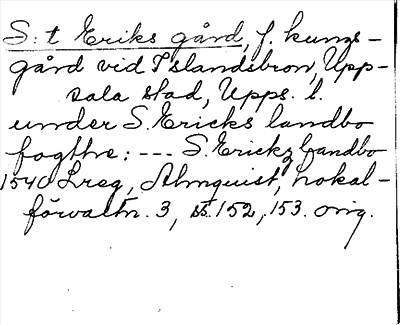 S:t Eriks gård, f. kungs-
gård vid Islandsbron, Upp-
sala stad, Upps. l.
under S. Ericks landbo
fogthe: --- S. Erickz landbo
1540 Lreg, Almquist, Lokal-
förvaltn. 3, s. 152, 153. orig.